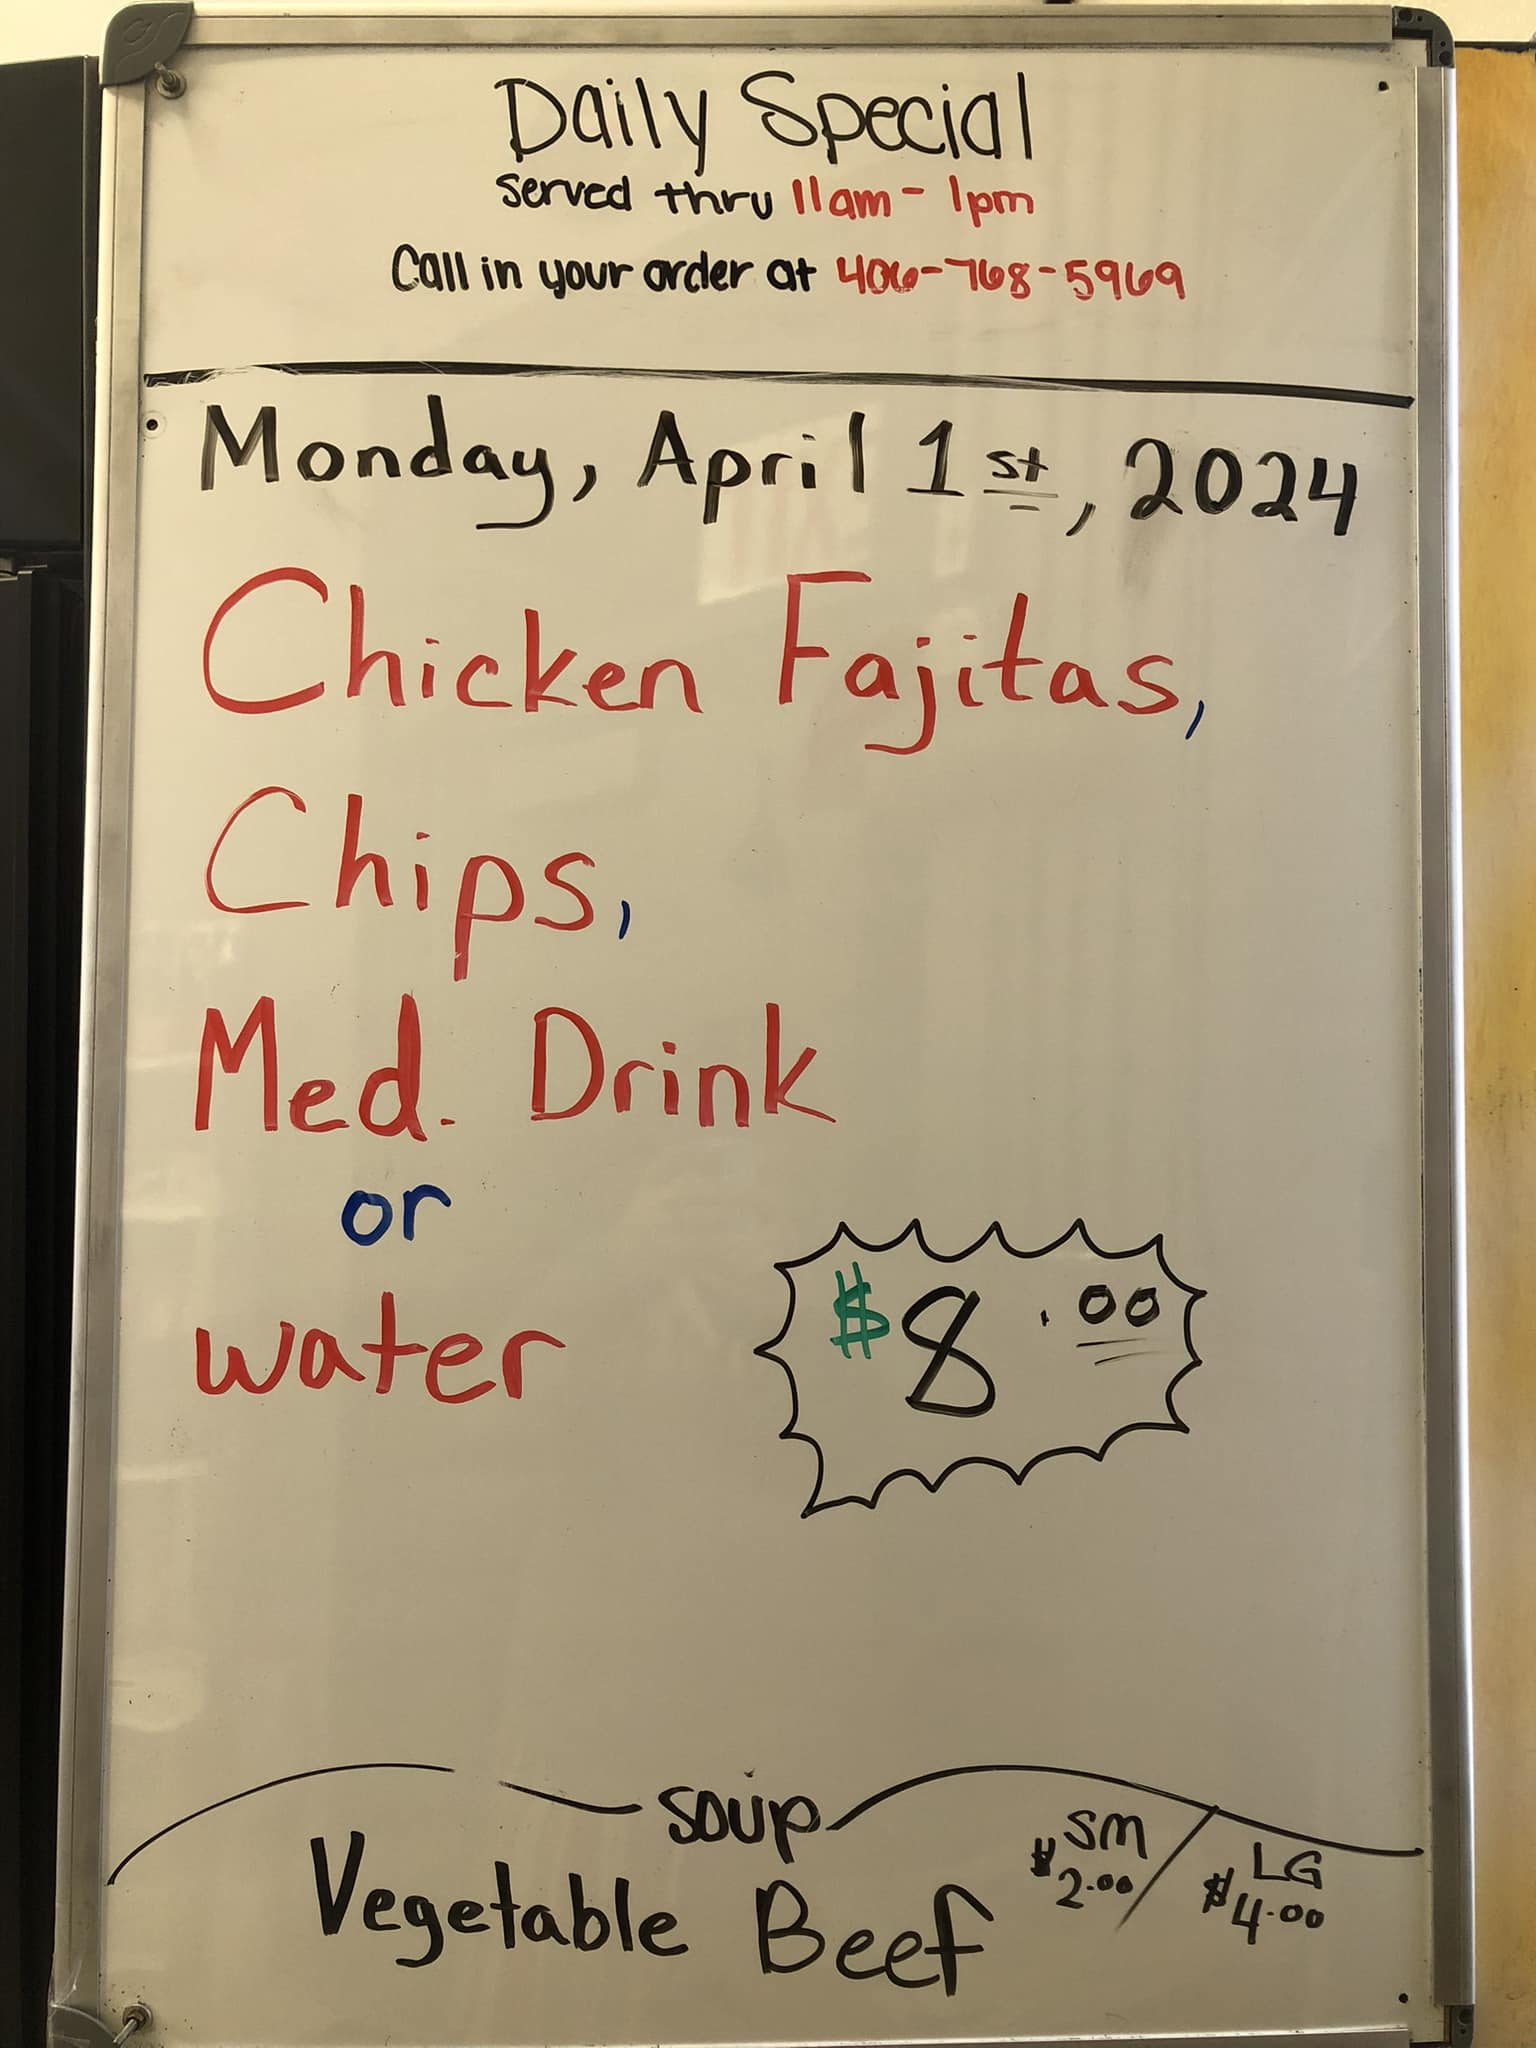 Daily Special
served thru 11am - 1pm
Call in your order at 406-768-5969
Monday, April 1st, 2024
Chicken Fajitas,
Chips,
Med. Drink
or
water
$8.00
soup
Vegetable Beef
SM
$2.00
LG
$4.00